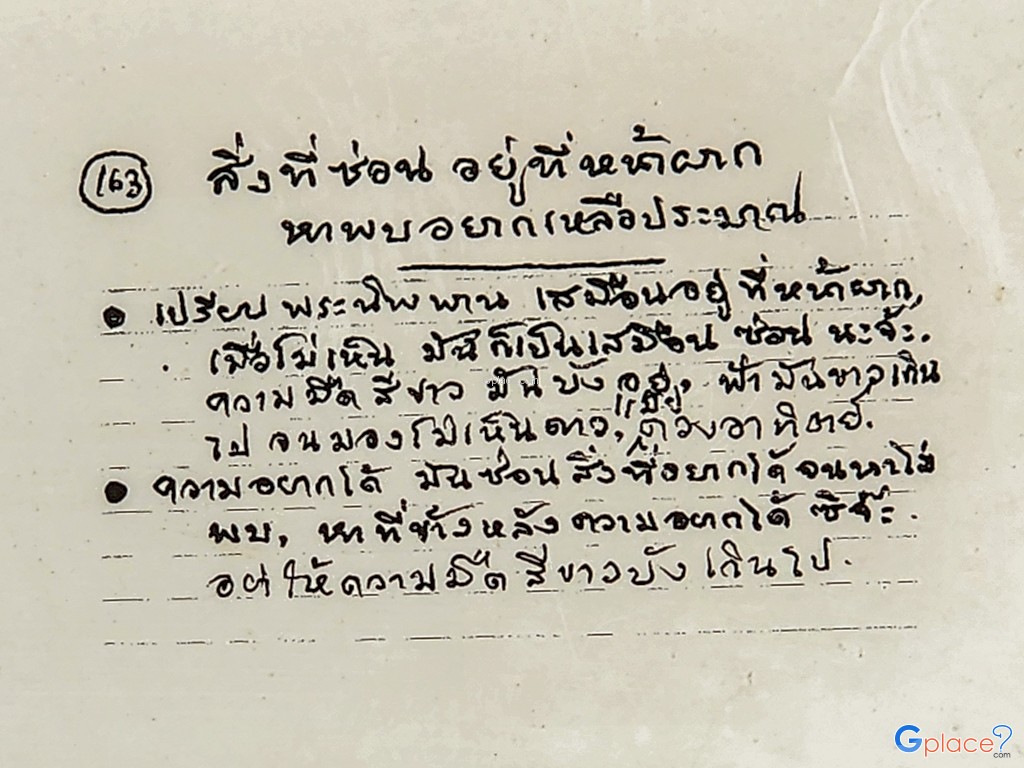 (163) สิ่งที่ซ่อน อยู่ที่หน้าผาก
หาพบอยากเหลือประมาณ
● เปรียบ พระนิพพาน เสมือนอยู่ ที่หน้าผาก,
เมื่อไม่เห็น มันก็เป็นเสมือน ซ่อน นะจ๊ะ.
ความมืด สีขาว มันบังอยู่, ฟ้า มันขาวเกิน
ไป จนมองไม่เห็นดาว, แม้ดวงอาทิตย์.
● ความอยากได้ มันซ่อนสิ่งที่อยากได้จนหาไม่
พบ, หาที่ข้างหลังความอยากได้ ซิจ๊ะ.
อย่าให้ความมืด สีขาวบัง เกินไป.
Gplace?
.com